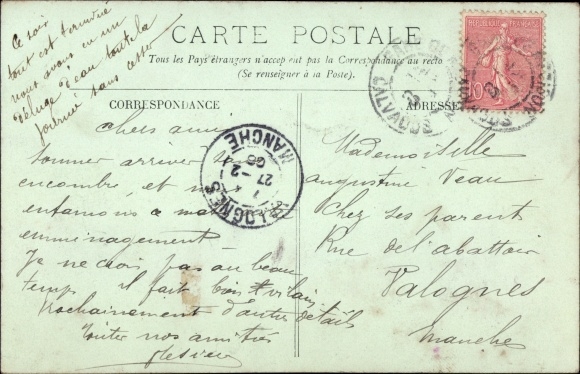 Ce soir
tout est terminé
nous avons eu un
déluge d'eau toute la
journée sans cesse
CARTE POSTALE
Tous les Pays étrangers n'acceptent pas la Correspondance au recto
(Se renseigner à la Poste).
CORRESPONDANCE
chers amis
sommes arrivés
encombre, et n
entamons
emménagement
Je ne crois pas au beau
temps il fait bien vilain
Prochainement d'autres détails
toutes nos amitiés
ADRESSE
Mademoiselle
augustine Veau
Chez ses parents
Rue de l'abattoir
Valognes
Manche
REPUBLIQUE FRANÇAISE
10
CALVADOS
VALOGNES
MANCHE
27 - 2